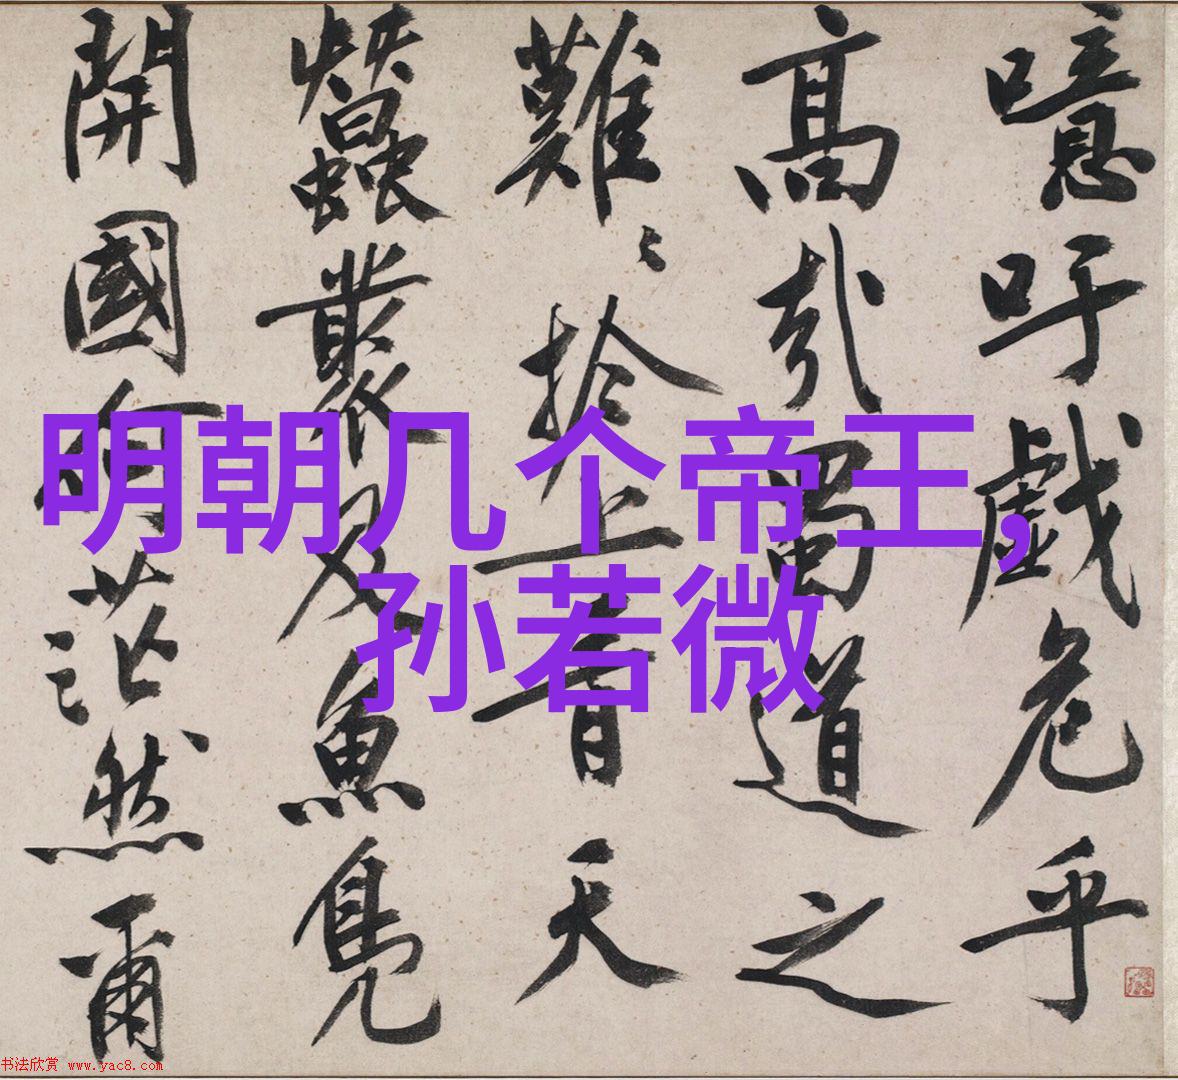 噫吁戲危乎
高哉蜀道之
難〻於上青天
蠶叢及魚鳧
開國何茫然爾
明朝几个帝王,
孙若微
书法欣赏 www.yac8.com